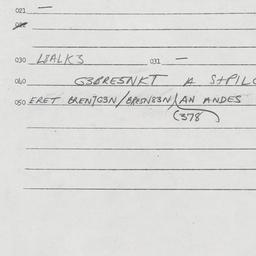 021 —
022
030 WALKS 031 —
040 G3BRESNKT A S+PILC
050 ERET BRENTG3N/BRESN83N/AN ANDES
(378